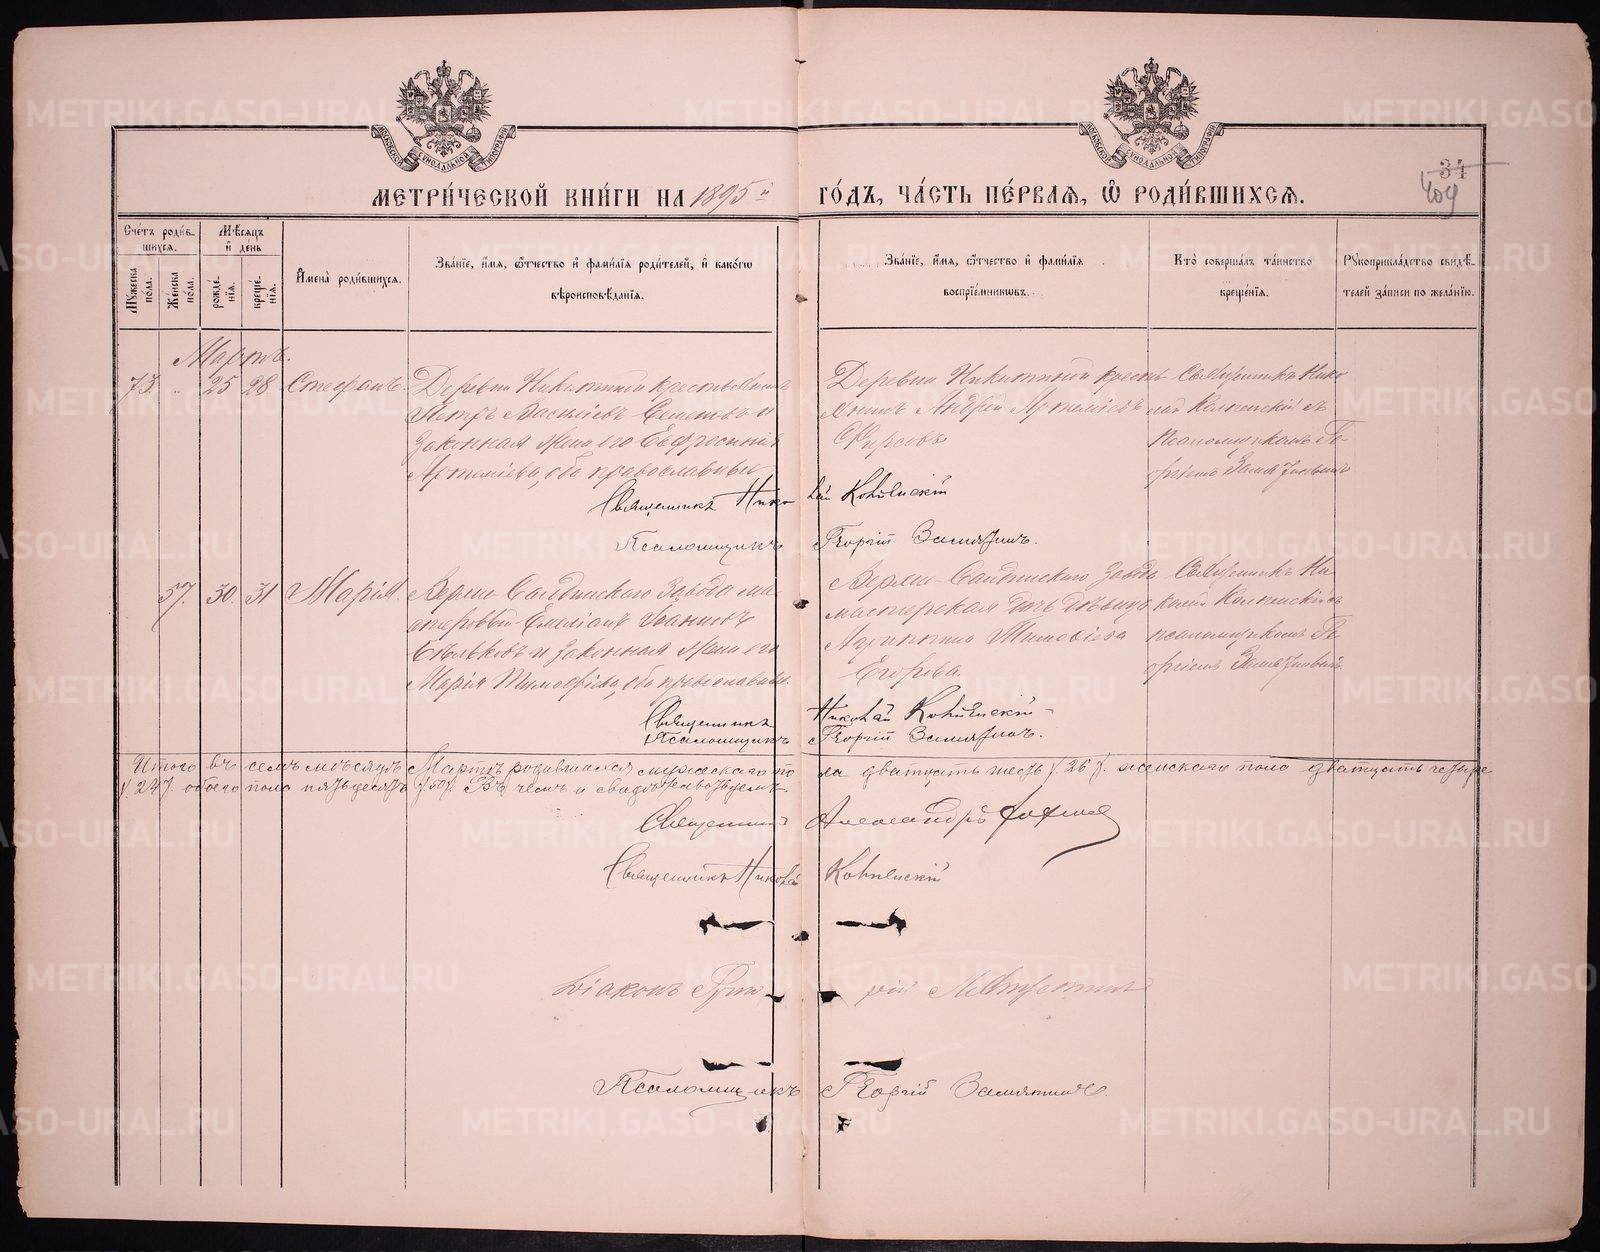 МЕТРИ́ЧЕСКОЙ КНИ́ГИ НА 1895й ГО́ДЪ, ЧА́СТЬ ПЕ́РВАЯ, Ѡ РОДИ́ВШИХСЯ.
34
409
Сче́тъ роди́в-
шихся.
Му́жеска
по́ла.
Же́нска
по́ла.
Мѣ́сяцъ
и де́нь
рожде́-
нїя.
креще́-
нїя.
Имена̀ роди́вшихся.
Зва́нїе, и́мя, ѻ́тчество и фами́лїя роди́телей, и како́гѡ
вѣроисповѣ́данїя.
Зва́нїе, и́мя, ѻ́тчество и фами́лїя
воспрїе́мникѡвъ.
Кто̀ соверша́лъ та́инство
креще́нїя.
Рукоприкла́дство свидѣ́-
телей за́писи по жела́нїю.
Мартъ.
73. " 25 28 Стефанъ.
Деревни Никитиной крестьянинъ
Петръ Васильевъ и
законная жена его Евфросинія
Артеміева, оба православные
Деревни Никитиной кресть-
янинъ Андрей Артеміевъ
Фирсовъ
Священникъ Нико-
лай Конпенскій съ
псаломщикомъ Ге-
оргіемъ Замятнинымъ
Священникъ Николай Конпенскій
Псаломщикъ Георгій Замятнинъ.
57. 30. 31 Марія.
Верхне-Салдинскаго Завода ма-
стеровой Емеліанъ Іванновъ
Бѣльковъ и законная жена его
Марія Тимофеева, оба православные.
Верхне-Салдинскаго Завода
мастерская дочь дѣвица
Агриппина Тимофіева
Егорова.
Священникъ Ни-
колай Конпенскій съ
псаломщикомъ Ге-
оргіемъ Замятнинымъ
Священникъ Николай Конпенскій
Псаломщикъ Георгій Замятнинъ.
Итого въ семъ мѣсяцѣ Мартѣ родившихся мужескаго пола дватцать шесть /26/. женскаго пола дватцать четыре
/24/. обоего пола пятьдесятъ /50/. Въ чемъ и свидѣтельствуемъ
Священникъ Александръ
Священникъ Николай Конпенскій
Діаконъ Григорій
Псаломщикъ Георгій Замятнинъ.
METRIKI.GASO-URAL.RU